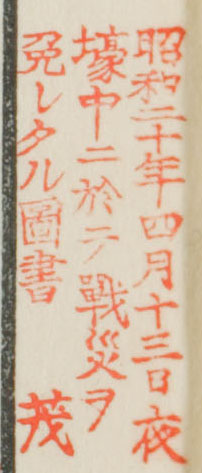 昭和二十年四月十三日夜
壕中ニ於テ戰災ヲ
免レタル圖書　茂